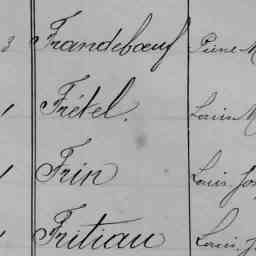 3 Frandebœuf Pierre M
1 Frétel. Louis M
1 Frin Louis Jos
1 Fritiau Louis J